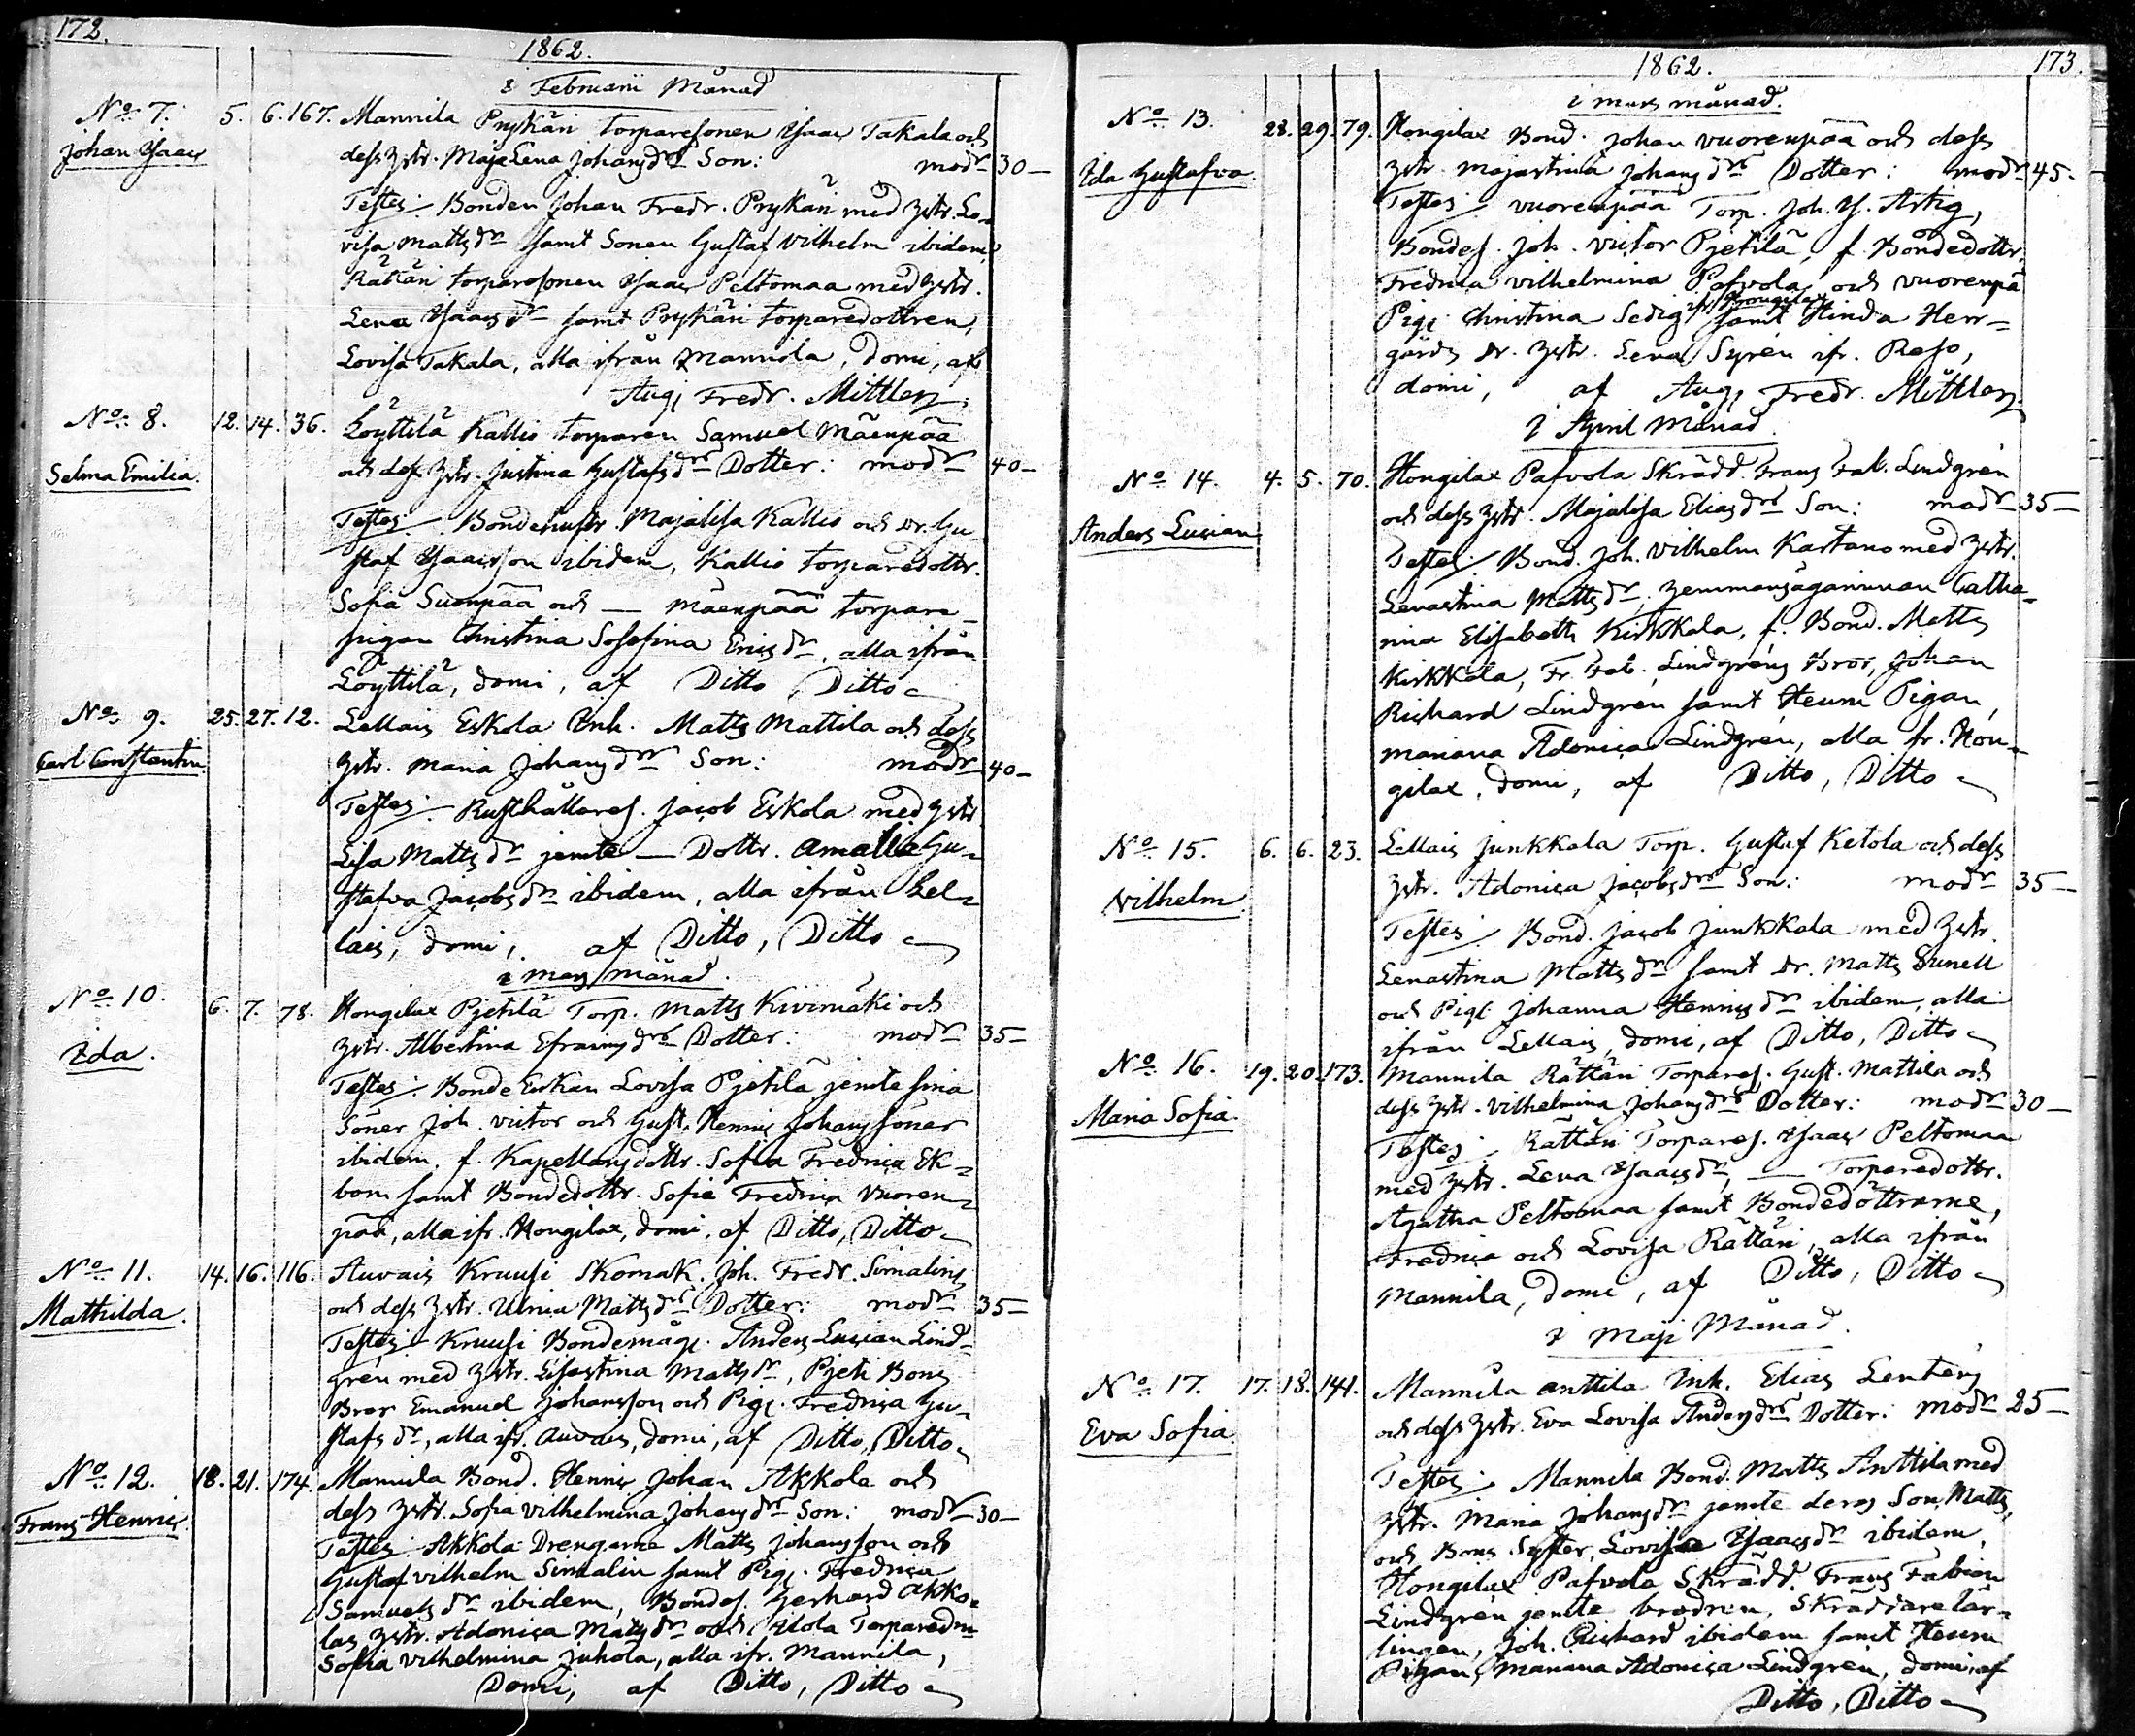 172.
1862.
i Februarii Månad
No. 7. 5. 6. 167. Mannila Prykäri torparesonen Isaac Takala och
Johan Isaac dess hstr. Maja Lena Johansdrs Son: modr 30 —
Testes: Bonden Johan Fredr. Prykäri med hstr. Lo-
visa Mattsdr samt Sonen Gustaf Vilhelm ibidem,
Rättäri torparesonen Isaac Peltomaa med hstr.
Lena Isaacsdr samt Prykäri torparedottren,
Lovisa Takala, alla ifrån Mannila, domi, af
Aug. Fredr. Mittler.
No. 8. 12. 14. 36. Löyttilä Kallio torparen Samuel Mäenpää
Selma Emilia. och dess hstr. Justina Gustafsdrs Dotter: modr 40 —
Testes: Bondehustr. Majalisa Kallio och dr. Gu-
staf Isaacsson ibidem, Kallio torparedottr.
Sofia Suonpää och — Mäenpää torpare-
pigan Christina Josefina Ericsdr, alla ifrån
Löyttilä, domi, af Ditto Ditto
No. 9. 25. 27. 12. Lellais Eskola Inh. Matts Mattila och dess
Carl Constantin hstr. Maria Johansdrs Son: modr 40 —
Testes: Rusthållares. Jacob Eskola med hstr
Lisa Mattsdr jemte — Dottr. Amalia Gu-
stafva Jacobsdr ibidem, alla ifrån Lel-
lais, domi, af Ditto, Ditto
i Mars månad.
No. 10. 6. 7. 78. Hongilax Pjetilä Torp. Matts Kivimäki och
Ida. hstr. Albertina Efraimsdrs Dotter: modr 35 —
Testes: Bonde Enkan Lovisa Pjetilä jemte sina
Söner Joh. Victor och Gust. Henric Johanssöner
ibidem, f. Kapellansdottr. Sofia Fredrica Ek-
bom samt Bondedottr. Sofia Fredrica Vuoren-
pää, alla ifr. Hongilax, domi, af Ditto, Ditto
No. 11. 14. 16. 116. Auvais Kruusi Skomak. Joh. Fredr. Simalins
Mathilda. och dess hstr. Ulrica Mattsdrs Dotter: modr 35 —
Testes: Kruusi Bondemåg. Anders Lucian Lind-
grén med hstr. Lisastina Mattsdr, Pjeti Bons
Bror Emanuel Johansson och Pig. Fredrica Gu-
stafsdr, alla ifr. Auvais, domi, af Ditto, Ditto
No. 12. 18. 21. 174. Mannila Bond. Henric Johan Akkola och
Frans Henric. dess hstr. Sofia Vilhelmina Johansdrs Son: modr 30 —
Testes: Akkola Drengarne Matts Johansson och
Gustaf Vilhelm Simalin samt Pig. Fredrica
Samuelsdr ibidem, Bondes. Gerhard Akko-
las hstr. Adonica Mattsdr och Torparedr
Sofia Vilhelmina Juhola, alla ifr. Mannila,
Domi, af Ditto, Ditto
173.
1862.
i mars månad.
No. 13. 28. 29. 79. Hongilax Bond. Johan Vuorenpää och dess
Ida Gustafva hstr. Majastina Johansdrs Dotter: modr 45.
Testes: Vuorenpää Torp. Joh. H. Artig,
Bondes. Joh. Victor Pjetilä, f. Bondedottr.
Fredrica Vilhelmina Pafvola och Vuorenpä
Pig. Christina Sedig ifr. Hongilax samt Hinda Herr-
gårds dr. hstr. Lena Syrén ifr. Reso,
domi, af Aug. Fredr. Mittler.
i April Månad.
No. 14. 4. 5. 70. Hongilax Pafvola Skrädd. Frans Fab. Lindgrén
Anders Lucian och dess hstr. Majalisa Eliasdrs Son: modr 35 —
Testes: Bond. Joh. Vilhelm Kartano med hstr.
Lenastina Mattsdr, hemmansägarinnan Catha-
rina Elisabeth Kirkkala, f. Bond. Matts
Kirkkala, Fr. Fab. Lindgréns Bror, Johan
Richard Lindgrén samt Heurn Pigan,
Mariana Adonica Lindgrén, alla fr. Hon-
gilax, domi, af Ditto, Ditto
No. 15. 6. 6. 23. Lellais Junkkala Torp. Gustaf Ketola och dess
Vilhelm. hstr. Adonica Jacobsdrs Son: modr 35 —
Testes: Bond. Jacob Junkkala med hstr.
Lenastina Mattsdr samt dr. Matts Brunell
och Pig. Johanna Henricsdr ibidem, alla
ifrån Lellais, domi, af Ditto, Ditto
No. 16. 19. 20. 173. Mannila Rättäri Torpares. Gust. Mattila och
Maria Sofia. dess hstr. Vilhelmina Johansdrs Dotter: modr 30 —
Testes: Rättäri Torpares. Isaac Peltomaa
med hstr. Lena Isaacsdr, — Torparedottr.
Agatha Peltomaa samt Bondedöttrarne,
Fredrica och Lovisa Rättäri, alla ifrån
Mannila, domi, af Ditto, Ditto
i Maji Månad.
No. 17. 17. 18. 141. Mannila Anttila Inh. Elias Lenténs
Eva Sofia. och dess hstr. Eva Lovisa Andersdrs Dotter: modr 25 —
Testes: Mannila Bond. Matts Anttila med
hstr. Maria Johansdr jemte deras Son, Matts,
och Bons Syster, Lovisa Isaacsdr ibidem,
Hongilax Pafvola Skrädd. Frans Fabian
Lindgrén jemte brodren, Skräddarelär-
lingen, Joh. Richard ibidem samt Heurn
Pigan, Mariana Adonica Lindgrén, domi, af
Ditto, Ditto